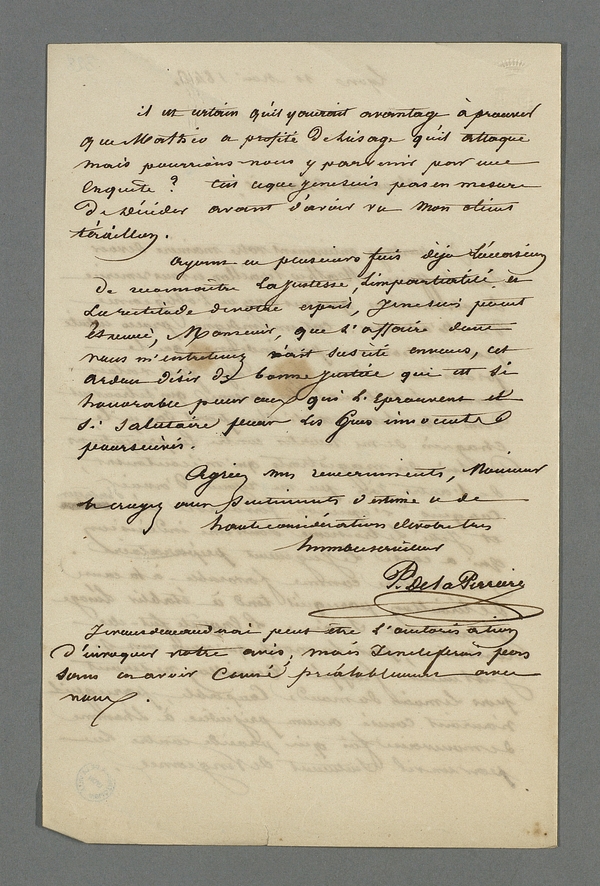 il est certain qu'il y aurait avantage à prouver
que Mathéo a profité de l'usage qu'il attaque
mais pourrions-nous y parvenir par une
enquête ? C'est ce que je ne suis pas en mesure
de décider avant d'avoir vu mon client
Ayant eu plusieurs fois déjà l'occasion
de reconnaître la justesse, l'impartialité et
la rectitude de votre esprit, je ne suis point
étonné, Monsieur, que l'affaire dont
vous m'entretenez ait suscité en vous, cet
ardent désir de bonne justice qui est si
honorable pour ceux qui l'éprouvent et
si salutaire pour les gens innocents
poursuivis.
Agréez mes remerciments, Monsieur
et croyez aux sentiments d'estime et de
haute considération de votre très
humble serviteur
P. de la Perrière
Je vous demanderai peut être l'autorisation
d'invoquer votre avis, mais je ne le ferais pas
sans en avoir causé préalablement avec
vous.